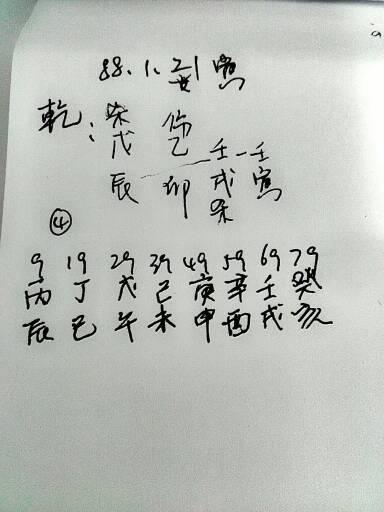 88.1.21 寅
乾: 杀 伤
戊 乙 壬 壬
辰 卯 戌 寅
杀
④
9 19 29 39 49 59 69 79
丙 丁 戊 己 庚 辛 壬 癸
辰 巳 午 未 申 酉 戌 亥